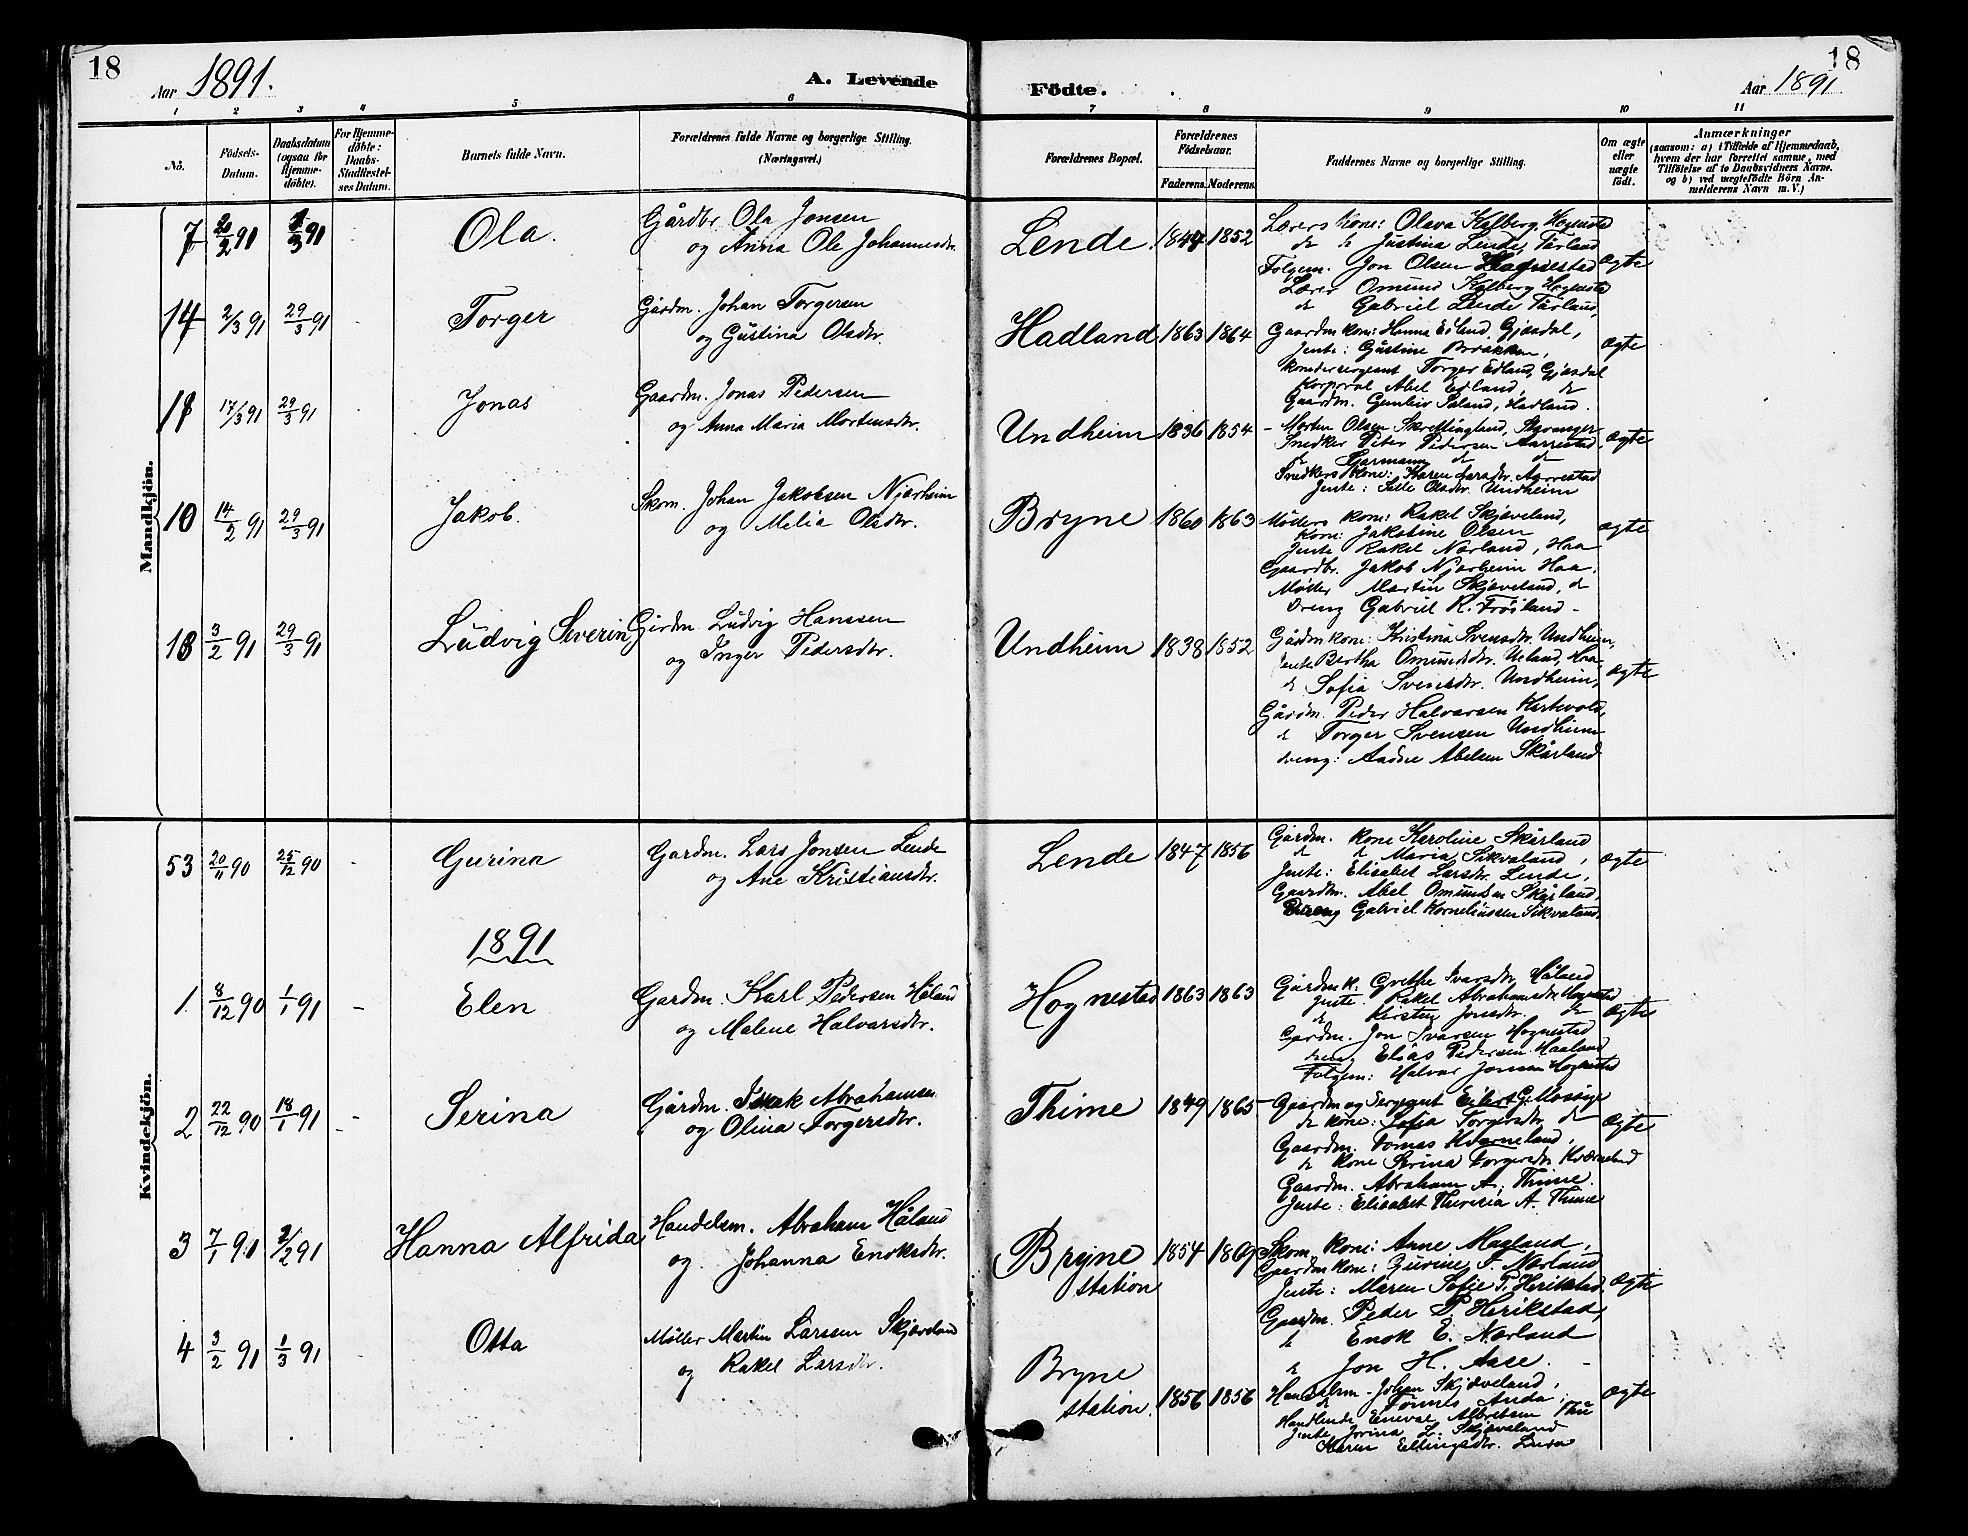 18
Aar 1891.
A. Levende Födte.
Aar 1891
18
1 2 3 4 5 6 7 8 9 10 11
No.
Födsels-Datum.
Daabsdatum (ogsaa for Hjemme-döbte).
For Hjemme-döbte: Daabs-Stadfæstel-ses Datum.
Barnets fulde Navn.
Forældrenes fulde Navne og borgerlige Stilling. (Næringsvei.)
Forældrenes Bopæl.
Forældrenes Födselsaar.
Faderens. Moderens.
Faddernes Navne og borgerlige Stilling.
Om ægte eller uægte födt.
Anmærkninger
(saasom: a) i Tilfælde af Hjemmedaab, hvem der har forrettet samme, med Tilföielse af to Daabsvidners Navne, og b) ved uægtefödte Börn An-melderens Navn m. V.)
Mandkjön.
7 20/2 91 /3 91 Ola. Gårdbr Ola Jonsen
og Anna Ole Johannesdtr.
Lende 1852
Lærers kone: Olava Kalberg, Hognestad
do do Justina Lende, Tårland
Folgem. Jon Olsen ægte
Lærer Omund Kalberg Hognestad
do Gabriel Lende Tårland,
14 2/3 91 29/3 91 Torger Gårdm. Johan Torgersen
og Gustina Olsdtr.
Hadland 1863 1864 ægte
Gaardm kone: Hanna Edland, Gjæsdal,
Jente: Gustine Brække,
Torger Edland, Gjæsdal
Korporal Abel Edland, do
Gaardm. Saland, Hadland.
17/3 91 29/3 91 Jonas Gaardm. Jonas Pedersen
og Anna Maria Mortensdtr.
Undheim 1836 1854 ægte
Morten Olsen Skrettingland, Stavanger
Snedker Peter Pedersen Aarrestad,
Snedkers kone: Karen
Jente: Olsdtr. Undheim
10 14/2 91 29/3 91 Jakob. Skom. Johan Jakobsen Njærheim
og Melia Olsdtr.
Bryne 1860 1863 ægte
Møllers kone: Rakel Skjæveland,
Kone: Jakobine Olsen
Jente Rakel Nærland, Haa
Gaardbr. Jakob Njærheim Haa.
Møller Martin Skjæveland, do
Dreng Gabriel R. Frøiland
18 3/2 91 29/3 91 Ludvig Severin Gårdm. Ludvig Hanssen
og Inger Pedersdtr.
Undheim 1838 1852 ægte
Gårdm kone: Kristina Svensdtr. Undheim,
Jente Bertha Omundsdtr. Ueland, Haa,
do Sofia Svensdtr. Undheim,
Gårdm. Peder Halvarsen
do Torger Svensen Undheim
dreng: Abelsen Skårland
Kvindekjön.
53 20/11 90 25/12 90 Gurina Gardm. Lars Jonsen Lende
og Ane Kristiansdtr.
Lende 1847 1856 ægte
Gårdm. kone Karoline Skårland
do do Maria Sikvaland,
Jente: Elisabet Larsdtr. Lende,
Gaardm. Abel Omundsen Skårland,
Dreng Gabriel Korneliussen Sikvaland.
1891
1 8/12 90 1/1 91 Elen Gardm. Karl Pedersen Håland
og Malene Halvarsdtr.
Hognestad 1863 1863 ægte
Gårdm k. Grethe Ivarsdtr. Håland
Jente. Rakel Abrahamsdtr. Hognestad
do Kirsten Jonsdtr. do
Gardm. Jon Ivarsen Hognestad
dreng Elias Pedersen Haaland
Folgem: Halvar Jonsen Hognestad
2 22/12 90 18/1 91 Serina Gårdm. Isak Abrahamsen
og Olina Torgersdtr.
Thime 1849 1865 ægte
Gaardm og Sergeant Eilert G. Mossige
do kone: Sofia Torgersdtr. do
Gaardm. Tornas Kværneland,
do kone Serina Torgersdtr Kværneland
Gaardm. Abraham A. Thime.
Jente: Elisabet Theresia A. Thime
3 7/1 91 2/2 91 Hanna Alfrida Handelsm. Abraham Håland
og Johanna Enoksdtr.
Bryne station 1854 ægte
Skom. kone: Anne Haaland,
Gaardm kone: Gurine F. Nærland
Jente: Maren Sofie P. Herikstad,
Gaardm. Peder P. Herikstad,
do Enok E. Nærland
do Jon H. Aase.
4 3/2 91 1/3 91 Otta Møller Martin Larssen Skjæveland
og Rakel Larsdtr.
Bryne station. 1856 1856 ægte
Handelsm. Johan Skjæveland,
do Tønnes Anda
Handlende Enevald Albretsen, Thu
Jente Jorina L. Skjæveland
Karen Ellingsdtr. Lura